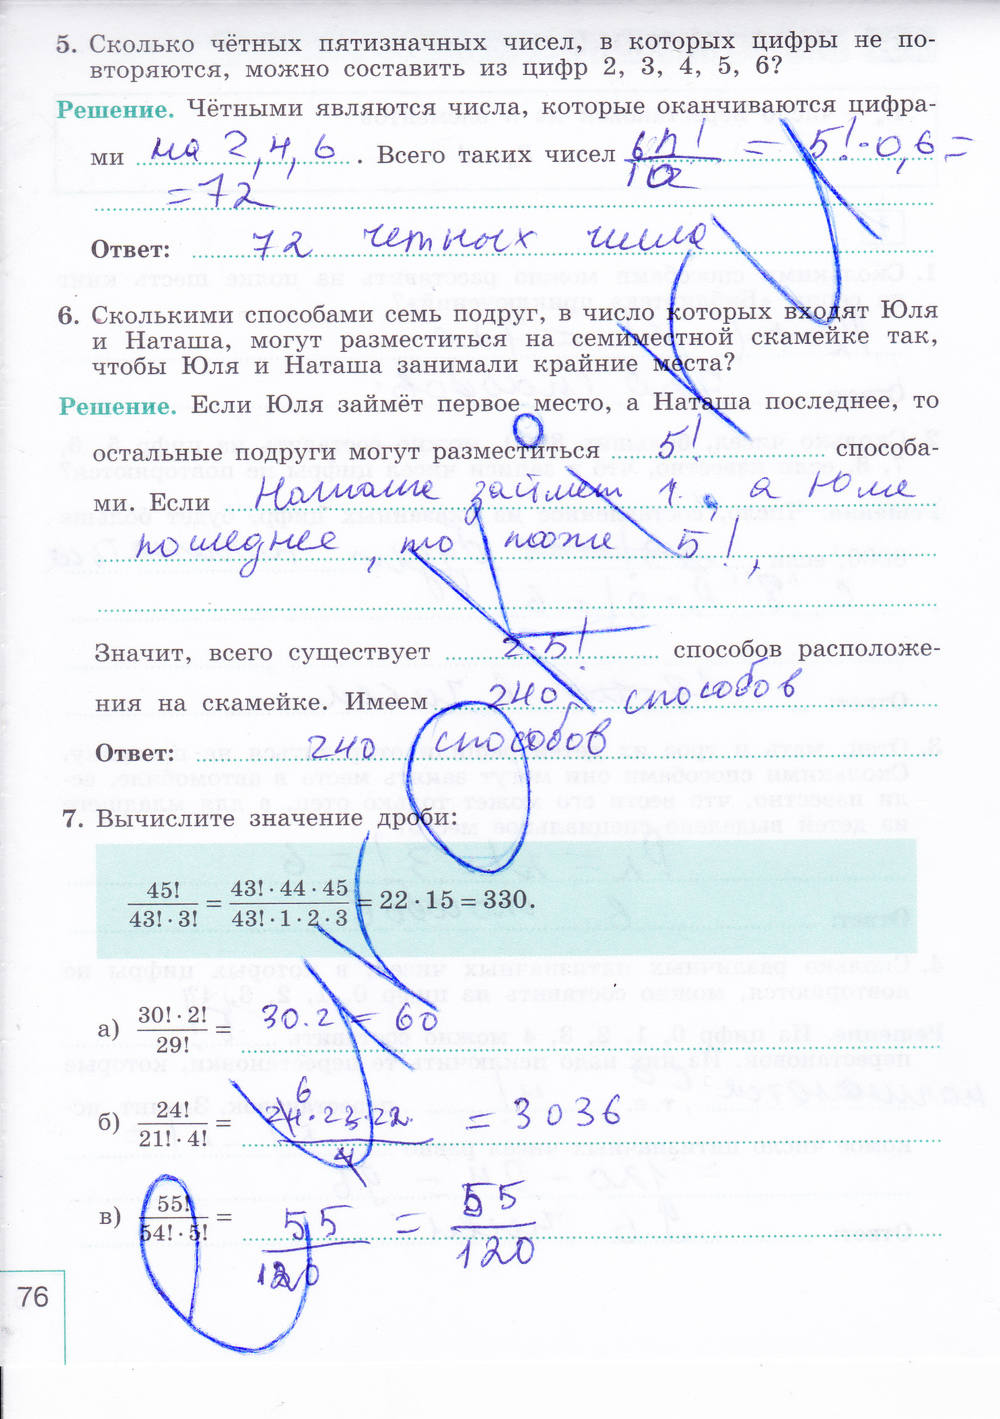 5. Сколько чётных пятизначных чисел, в которых цифры не по-
вторяются, можно составить из цифр 2, 3, 4, 5, 6?
Решение. Чётными являются числа, которые оканчиваются цифра-
ми на 2, 4, 6 . Всего таких чисел = 5! · 0,6 =
= 72
Ответ: 72 четных числа
6. Сколькими способами семь подруг, в число которых входят Юля
и Наташа, могут разместиться на семиместной скамейке так,
чтобы Юля и Наташа занимали крайние места?
Решение. Если Юля займёт первое место, а Наташа последнее, то
остальные подруги могут разместиться 5! способа-
ми. Если Наташа займет 1, а Юля
последнее, то тоже 5!,
Значит, всего существует 2·5! способов расположе-
ния на скамейке. Имеем 240 способов
Ответ: 240 способов
7. Вычислите значение дроби:
45!/(43! · 3!) = (43! · 44 · 45)/(43! · 1 · 2 · 3) = 22 · 15 = 330.
а) (30! · 2!)/29! = 30 · 2 = 60
б) 24!/(21! · 4!) = 6 24·23·22/4 = 3036
в) 55!/(54! · 5!) = 55/120 = 55/120
76